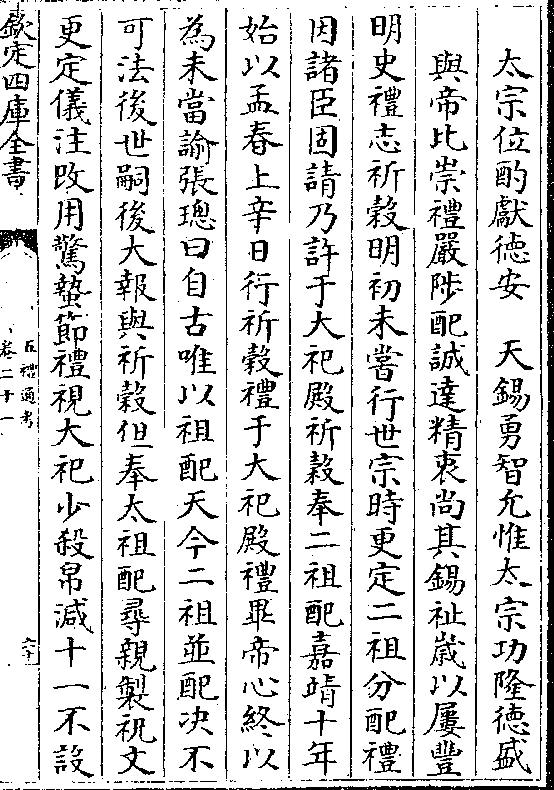 太宗位酌獻德安　天錫勇智允惟太宗功隆德盛
與帝比崇禮嚴陟配誠達精衷尚其錫祉歲以屢豐
明史禮志祈穀明初未嘗行世宗時更定二祖分配禮
因諸臣固請乃許于大祀殿祈穀奉二祖配嘉靖十年
始以孟春上辛日行祈穀禮于大祀殿禮畢帝心終以
為未當諭張璁曰自古唯以祖配天今二祖並配决不
可法後世嗣後大報與祈穀但奉太祖配尋親製祝文
更定儀注改用驚蟄節禮視大祀少殺帛減十一不設
欽定四庫全書
五禮通考
卷二十一